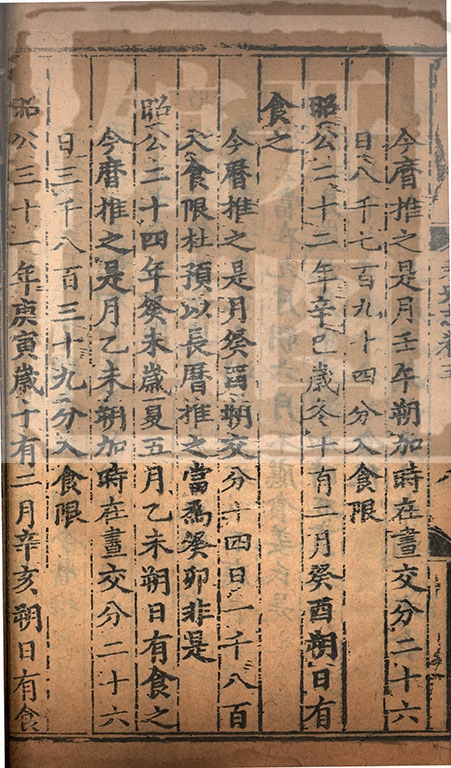 今曆推之是月壬午朔加時在晝交分二十六
日八千七百九十四分入食限
昭公二十二年辛巳歲冬十有二月癸酉朔日有
食之
今曆推之是月癸酉朔交分十四日一千八百
入食限杜預以長曆推之當為癸卯非是
昭公二十四年癸未歲夏五月乙未朔日有食之
今曆推之是月乙未朔加時在晝交分二十六
日三千八百三十九分入食限
昭公三十一年庚寅歲十有二月辛亥朔日有食